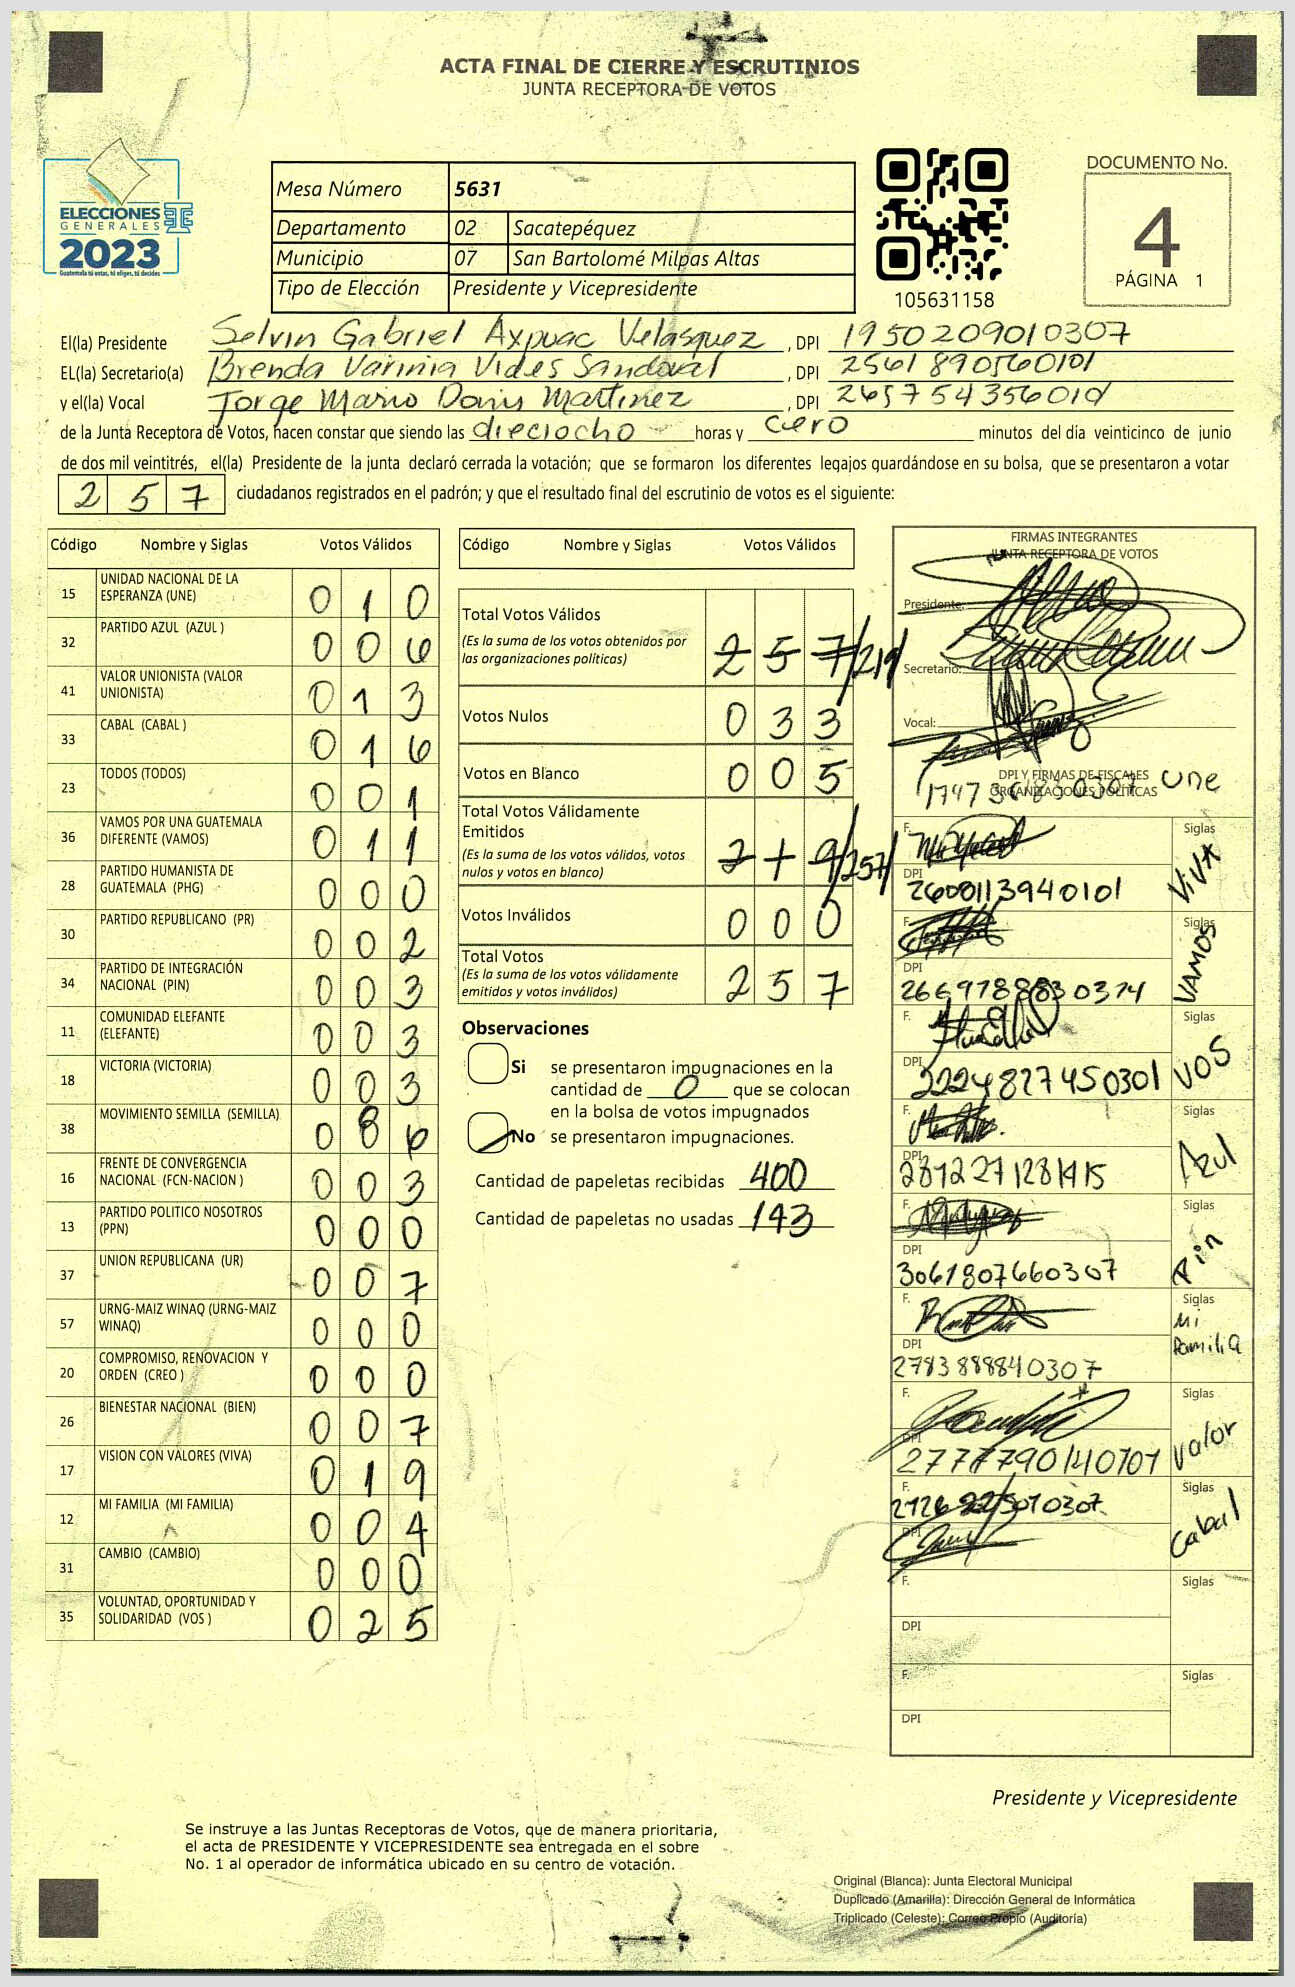 ACTA FINAL DE CIERRE Y ESCRUTINIOS
JUNTA RECEPTORA DE VOTOS
ELECCIONES
GENERALES
2023
Guatemala tú votas, tú eliges, tú decides
Mesa Número 5631
Departamento 02 Sacatepéquez
Municipio 07 San Bartolomé Milpas Altas
Tipo de Elección Presidente y Vicepresidente
105631158
DOCUMENTO No.
4
PÁGINA 1
El(la) Presidente Selvin Gabriel Axpuac Velasquez, DPI 1950209010307
EL(la) Secretario(a) Brenda Varinia Vides Sandoval, DPI 2561890560101
y el(la) Vocal Jorge Mario Donis Martinez, DPI
de la Junta Receptora de Votos, hacen constar que siendo las dieciocho horas y cero minutos del día veinticinco de junio
de dos mil veintitrés, el(la) Presidente de la junta declaró cerrada la votación; que se formaron los diferentes legajos guardándose en su bolsa, que se presentaron a votar
257 ciudadanos registrados en el padrón; y que el resultado final del escrutinio de votos es el siguiente:
Código Nombre y Siglas Votos Válidos
15 UNIDAD NACIONAL DE LA ESPERANZA (UNE) 010
32 PARTIDO AZUL (AZUL ) 006
41 VALOR UNIONISTA (VALOR UNIONISTA) 013
33 CABAL (CABAL ) 016
23 TODOS (TODOS) 001
36 VAMOS POR UNA GUATEMALA DIFERENTE (VAMOS) 011
28 PARTIDO HUMANISTA DE GUATEMALA (PHG) 000
30 PARTIDO REPUBLICANO (PR) 002
34 PARTIDO DE INTEGRACIÓN NACIONAL (PIN) 003
11 COMUNIDAD ELEFANTE (ELEFANTE) 003
18 VICTORIA (VICTORIA) 003
38 MOVIMIENTO SEMILLA (SEMILLA) 086
16 FRENTE DE CONVERGENCIA NACIONAL (FCN-NACION ) 003
13 PARTIDO POLITICO NOSOTROS (PPN) 000
37 UNION REPUBLICANA (UR) 007
57 URNG-MAIZ WINAQ (URNG-MAIZ WINAQ) 000
20 COMPROMISO, RENOVACION Y ORDEN (CREO ) 000
26 BIENESTAR NACIONAL (BIEN) 007
17 VISION CON VALORES (VIVA) 019
12 MI FAMILIA (MI FAMILIA) 004
31 CAMBIO (CAMBIO) 000
35 VOLUNTAD, OPORTUNIDAD Y SOLIDARIDAD (VOS ) 025
Código Nombre y Siglas Votos Válidos
Total Votos Válidos 257/219/
(Es la suma de los votos obtenidos por
las organizaciones políticas)
Votos Nulos 033
Votos en Blanco 005
Total Votos Válidamente
Emitidos 219/257/
(Es la suma de los votos válidos, votos
nulos y votos en blanco)
Votos Inválidos 000
Total Votos 257
(Es la suma de los votos válidamente
emitidos y votos inválidos)
Observaciones
Si se presentaron impugnaciones en la
cantidad de 0 que se colocan
en la bolsa de votos impugnados
No se presentaron impugnaciones.
Cantidad de papeletas recibidas 400
Cantidad de papeletas no usadas 143
FIRMAS INTEGRANTES
JUNTA RECEPTORA DE VOTOS
Presidente:
Secretario:
Vocal:
DPI Y FIRMAS DE FISCALES
ORGANIZACIONES POLÍTICAS
une
F. Siglas VIVA
DPI 2600113940101
F. Siglas VAMOS
DPI
F. Siglas VOS
DPI 2224827450301
F. Siglas Azul
DPI
F. Siglas Pin
DPI 3061807660307
F. Siglas Mi Familia
DPI 2783888840307
F. Siglas Valor
DPI
F. Siglas Cabal
DPI
F. Siglas
DPI
F. Siglas
DPI
Presidente y Vicepresidente
Se instruye a las Juntas Receptoras de Votos, que de manera prioritaria,
el acta de PRESIDENTE Y VICEPRESIDENTE sea entregada en el sobre
No. 1 al operador de informática ubicado en su centro de votación.
Original (Blanca): Junta Electoral Municipal
Duplicado (Amarilla): Dirección General de Informática
Triplicado (Celeste): Correo Propio (Auditoría)